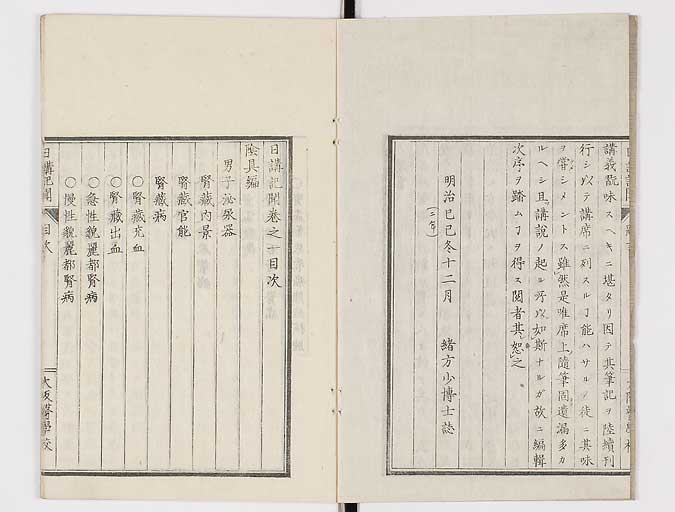 講義翫味スヘキニ堪タリ因テ其筆記ヲ陸續刊
行シ以テ講席ニ列スルヿ能ハサルノ徒ニ其味
ヲ嘗シメントス雖然是唯席上隨筆固遺漏多カ
ルヘシ且講説ノ起ル所以如斯ナルガ故ニ編輯
次序ヲ踏ムヿヲ得ス閲者其恕之
明治己巳冬十二月 緒方少博士誌
(二年)
日講記聞卷之一目次
陰具編
男子泌尿器
腎臓内景
腎臓官能
腎臓病
〇腎臓充血
〇腎臓出血
〇急性貌麗都腎病
〇慢性貌麗都腎病
日講記聞 目次 大阪醫學校